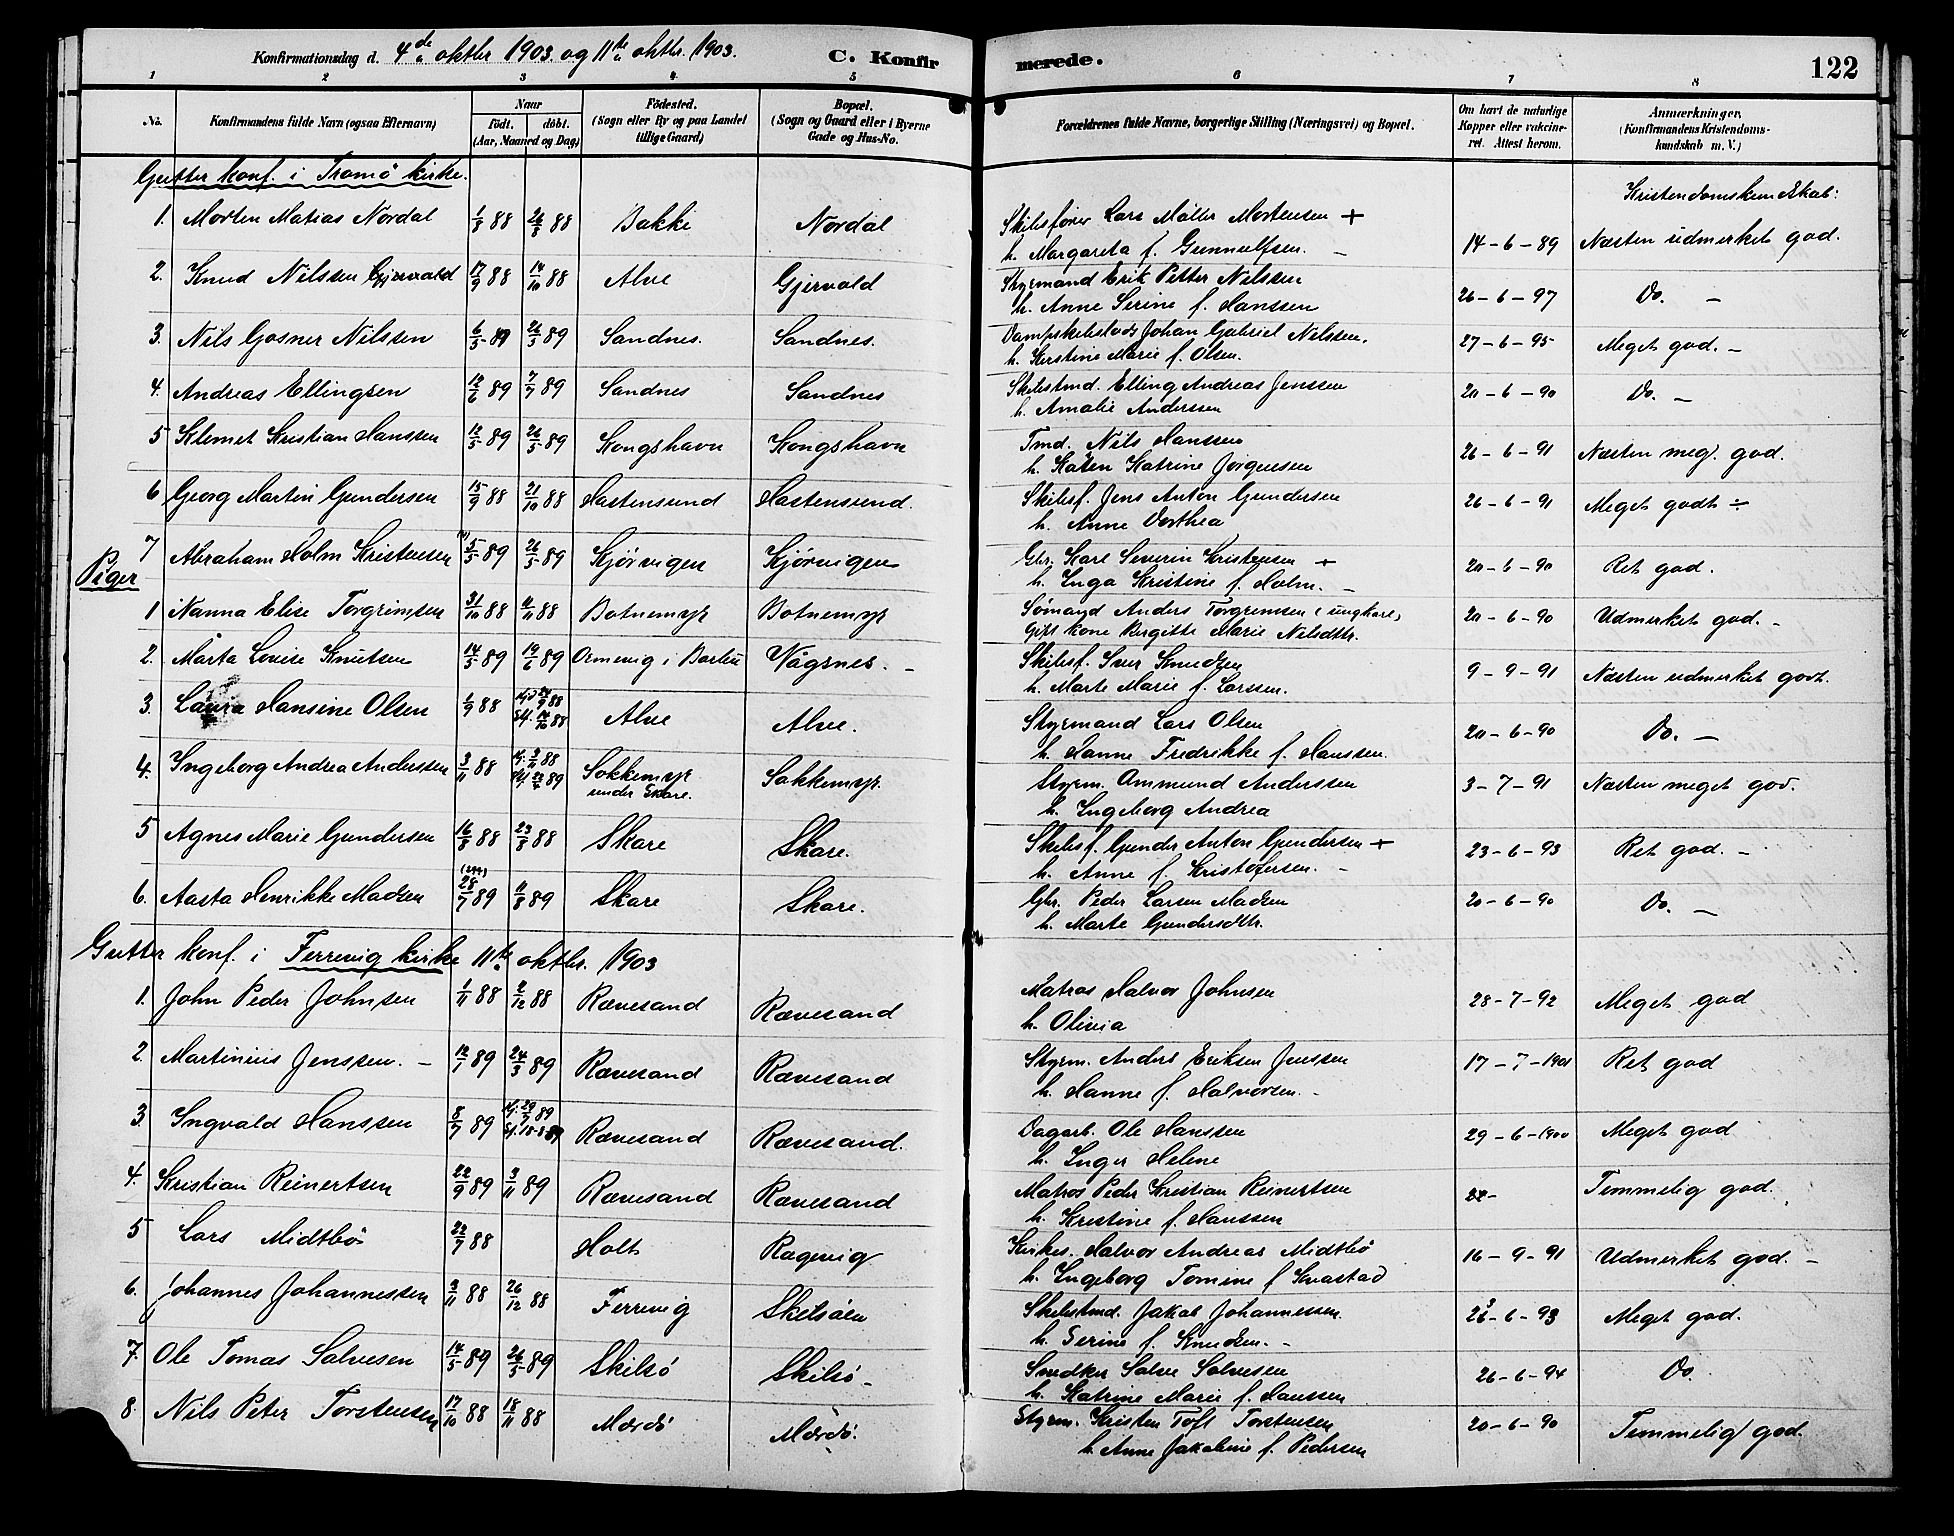 Konfirmationsdag d. 4de oktbr 1903 og 11te oktbr. 1903.
C. Konfirmerede.
122
1 2 3 4 5 6 7 8
No. Konfirmandens fulde Navn (ogsaa Efternavn) Naar födt. döbt. (Aar, Maaned og Dag) Födested. (Sogn eller By og paa Landet tillige Gaard) Bopæl. (Sogn og Gaard eller i Byerne Gade og Hus-No. Forældrenes fulde Navne, borgerlige Stilling (Næringsvei) og Bopæl. Om havt de naturlige Kopper eller vakcineret. Attest herom. Anmærkninger. (Konfirmandens Kristendomskundskab m. V.)
Gutter konf. i Tromö kirke.
Kristendomskundskab:
1. Morten Matias Nordal 1/8 88 26/8 88 Bakke Nordal Skibsförer Lars Möller Mortensen +
h. Margareta f. Gunnulfsen. – 14-6-89 Næsten udmerket god.
2. Knud Nilssen Gjervald 17/9 88 14/10 88 Alve Gjervald Styrmand Erik Petter Nilssen
h. Anne Serine f. Hanssen 26-6-97 Do. –
3. Nils Gosner Nilssen 6/5 89 26/5 89 Sandnes. Sandnes. Dampskibslods Johan Gabriel Nilssen.
h. Kirstine Marie f. Olsen. 27-6-95 Meget god. –
4. Andreas Ellingsen 12/6 89 7/7 89 Sandnes Sandnes Skibstmd. Elling Andreas Jenssen
h. Amalie Anderssen 20-6-90 Do. –
5 Klemet Kristian Hanssen 12/5 89 26/5 89 Kongshavn Kongshavn Tmd. Nils Hanssen
h. Katrine Jörgensen 26-6-91 Næsten meg. god.
6 Georg Martin Gundersen 15/9 88 21/10 88 Hastensund Hastensund. Skibsf. Jens Anton Gundersen
h. Anne Dorthea 26-6-91 Meget godt ÷
7 Abraham Holm Kristensen 5/5 89 26/5 89 Kjörvigen Kjörvigen Gbr. Karl Severin Kristensen +
h. Inga Kristine f. Holm. – 20-6-90 Ret god.
Piger
1 Nanna Elise Torgrimsen 31/10 88 11/11 88 Botnemyr Botnemyr Sömand Anders Torgrimsen (ungkarl,
Gift kone Birgitte Marie Nilsdtr. 20-6-90 Udmerket god. –
2. Marta Lovise Knutsen 14/5 89 19/6 89 Ormevig i Barbu Vågsnes. – Skibsf. Iver Knudsen
h. Marte Marie f. Larssen. 9-9-91 Næsten udmerket godt.
3. Laura Hansine Olsen 1/9 88 Alve Alve. Styrmand Lars Olsen
h. Hanne Fredrikke f. Hanssen. 20-6-90 Do. –
4. Ingeborg Andrea Anderssen 3/11 88 Sokkemyr under Skare. Sokkemyr. Styrm. Ommund Anderssen
h. Ingeborg Andrea 3-7-91 Næsten meget god.
5 Agnes Marie Gundersen 16/8 88 23/8 88 Skare Skare. Skibsf. Gunder Anton Gundersen +
h. Anne f. Kristofersen. – 23-6-93 Ret god. –
6. Aasta Henrikke Madsen 28/7 89 11/8 89 Skare Skare. Gbr. Peder Larsen Madsen
h. Marte Gundersdtr. 20-6-90 Do. –
Gutter konf. i Ferrevig kirke 11te oktbr. 1903
1. John Peder Johnsen 1/11 88 2/12 88 Rævesand Rævesand Matros Halvor Johnsen
h. Olivia 28-7-92 Meget god
2. Martinius Jenssen. – 12/1 89 24/3 89 Rævesand Rævesand Styrm. Anders Eriksen Jenssen
h. Hanne f. Halvorsen. – 17-7-1901 Ret god
3. Ingvald Hanssen 8/7 89 Rævesand Rævesand. Dagarb. Ole Hanssen
h. Inger Helene 29-6-1900 Meget god
4. Kristian Reinertsen 22/9 89 3/11 89 Rævesand Rævesand Matros Peder Kristian Reinertsen
h. Kristine f. Hanssen Temmelig god.
5 Lars Midtbö 22/7 88 Holt Ragevig Kirkes. Halvor Andreas Midtbö
h. Ingeborg Tomine f. Kvastad 16-9-91 Udmerket god. –
6. Johannes Johannessen 3/11 88 26/12 88 Ferrevig Skilsöen Skibstmd. Jakob Johannessen
h. Serine f. Knudsen. – 23-6-93 Meget god.
7. Ole Tomas Salvesen 14/5 89 26/5 89 Skilsö Skilsö – Snedker Salve Salvesen
h. Katrine Marie f. Hanssen 26-6-94 Do.
8. Nils Peter Torstensen 17/10 88 18/11 88 Mærdö Mærdö. Styrm. Kristen Toft Torstensen
h. Anne Jakobine f. Pedersen 20-6-90 Temmelig god.